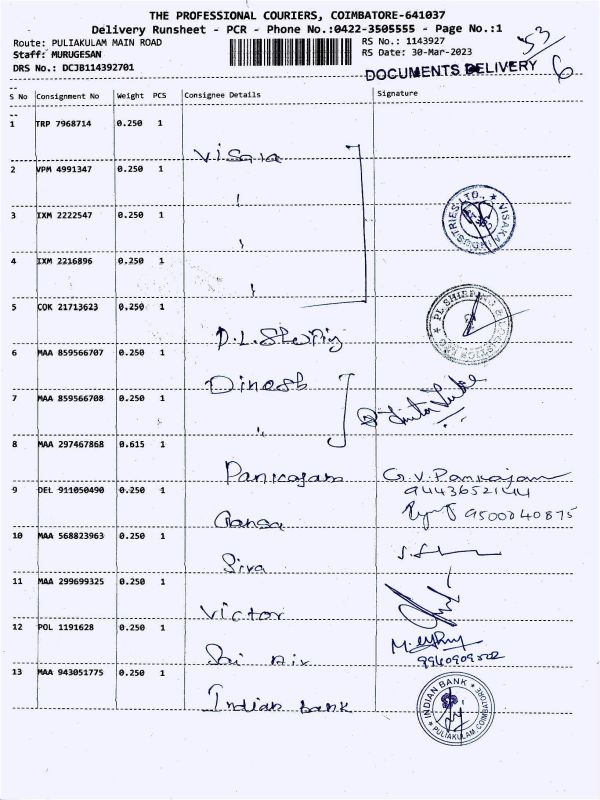 THE PROFESSIONAL COURIERS, COIMBATORE-641037
Delivery Runsheet - PCR - Phone No.:0422-3505555 - Page No.:1
Route: PULIAKULAM MAIN ROAD
RS No.: 1143927
Staff: MURUGESAN
RS Date: 30-Mar-2023
DRS No.: DCJB114392701
DOCUMENTS DELIVERY
53
6
S No Consignment No Weight PCS Consignee Details Signature
1 TRP 7968714 0.250 1
Visaka
2 VPM 4991347 0.250 1
3 IXM 2222547 0.250 1
VISAKA INDUSTRIES LTD.,
4 IXM 2216896 0.250 1
5 COK 21713623 0.250 1
P.L. Shipping
PL SHIPPING & LOGISTICS
6 MAA 859566707 0.250 1
Dinesh
7 MAA 859566708 0.250 1
8 MAA 297467868 0.615 1
Pankajam G.V. Pankajam
9 DEL 911050490 0.250 1
9500040875
10 MAA 568823963 0.250 1
Siva
11 MAA 299699325 0.250 1
Victor
12 POL 1191628 0.250 1
Sai
13 MAA 943051775 0.250 1
Indian Bank
INDIAN BANK
PULIAKULAM, COIMBATORE